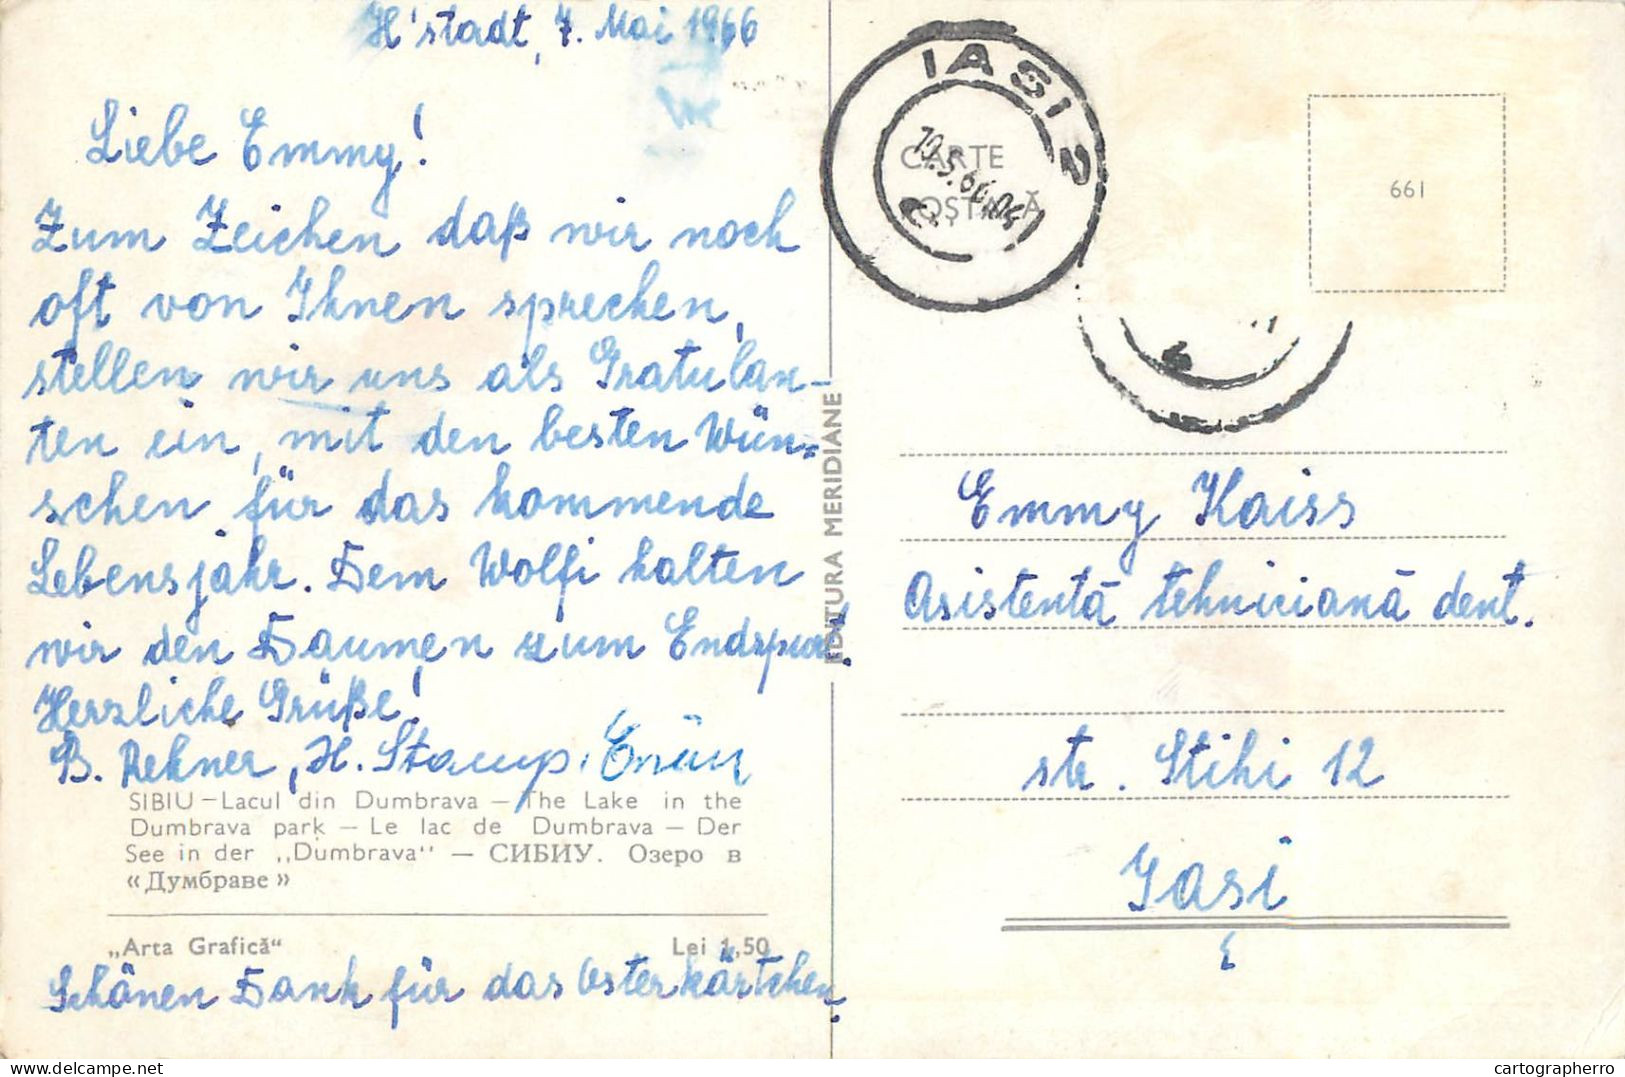 H'stadt, 7. Mai 1966
Liebe Emmy!
Zum Zeichen daß wir noch
oft von Ihnen sprechen,
stellen wir uns als Gratulan-
ten ein, mit den besten Wün-
schen für das kommende
Lebensjahr. Dem Wolfi halten
wir den Daumen zum Endspurt.
Herzliche Grüße!
B. Rekner, H. Stamp,
SIBIU – Lacul din Dumbrava – The Lake in the
Dumbrava park – Le lac de Dumbrava – Der
See in der ,,Dumbrava'' – СИБИУ. Озеро в
«Думбраве»
„Arta Grafică“ Lei 1,50
Schönen Dank für das Osterkärtchen.
EDITURA MERIDIANE
IASI 2
10.5.66
CARTE
POȘTALĂ
661
Emmy Kaiss
Asistentă tehniciană dent.
str. Stihi 12
Iasi
cartographerro